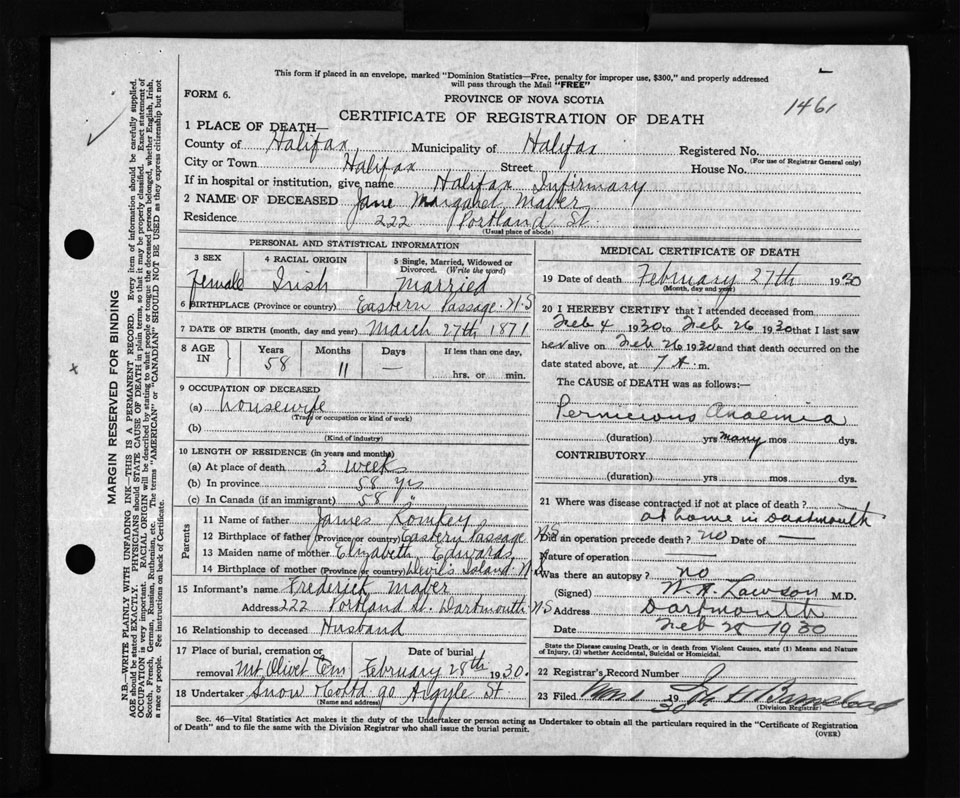 This form if placed in an envelope, marked "Dominion Statistics—Free, penalty for improper use, $300," and properly addressed
will pass through the Mail "FREE"
FORM 6.
PROVINCE OF NOVA SCOTIA
1461
CERTIFICATE OF REGISTRATION OF DEATH
1 PLACE OF DEATH—
County of Halifax Municipality of Halifax Registered No.
(For use of Registrar General only)
City or Town Halifax Street House No.
If in hospital or institution, give name Halifax Infirmary
2 NAME OF DECEASED Jane Margaret Maber
Residence 222 Portland St.
(Usual place of abode)
PERSONAL AND STATISTICAL INFORMATION
3 SEX Female
4 RACIAL ORIGIN Irish
5 Single, Married, Widowed or Divorced. (Write the word) Married
6 BIRTHPLACE (Province or country) Eastern Passage N.S
7 DATE OF BIRTH (month, day and year) March 27th 1871
8 AGE IN Years 58 Months 11 Days — If less than one day, hrs. or min.
9 OCCUPATION OF DECEASED
(a) Housewife
(Trade or occupation or kind of work)
(b)
(Kind of industry)
10 LENGTH OF RESIDENCE (in years and months)
(a) At place of death 3 weeks
(b) In province 58 yrs
(c) In Canada (if an immigrant) 58 "
Parents
11 Name of father James Romkey
12 Birthplace of father (Province or country) Eastern Passage N.S
13 Maiden name of mother Elizabeth Edwards
14 Birthplace of mother (Province or country) Devil's Island N.S
15 Informant's name Frederick Maber
Address 222 Portland St. Dartmouth N.S
16 Relationship to deceased Husband
17 Place of burial, cremation or removal Mt Olivet Cem
Date of burial February 28th 1930.
18 Undertaker Snow & Co Ltd 90 Argyle St
(Name and address)
MEDICAL CERTIFICATE OF DEATH
19 Date of death February 27th 1930
(Month, day and year)
20 I HEREBY CERTIFY that I attended deceased from
Feb 4 1930 to Feb 26 1930 that I last saw
her alive on Feb 26 1930 and that death occurred on the
date stated above, at 7 A. m.
The CAUSE of DEATH was as follows:—
Pernicious Anaemia
(duration) yrs many mos dys.
CONTRIBUTORY
(duration) yrs. mos dys.
21 Where was disease contracted if not at place of death?
at home in Dartmouth
Did an operation precede death? no Date of —
Nature of operation —
Was there an autopsy? no
(Signed) W. A. Lawson M.D.
Address Dartmouth
Date Feb 28 1930
State the Disease causing Death, or in Death from Violent Causes, state (1) Means and Nature
of Injury, (2) whether Accidental, Suicidal or Homicidal.
22 Registrar's Record Number
23 Filed 1930
(Division Registrar)
Sec. 46—Vital Statistics Act makes it the duty of the Undertaker or person acting as Undertaker to obtain all the particulars required in the "Certificate of Registration
of Death" and to file the same with the Division Registrar who shall issue the burial permit.
(OVER)
MARGIN RESERVED FOR BINDING
N.B.—WRITE PLAINLY WITH UNFADING INK—THIS IS A PERMANENT RECORD. Every item of information should be carefully supplied.
AGE should be stated EXACTLY. PHYSICIANS should STATE CAUSE OF DEATH in plain terms, so that it may be properly classified. Exact statement of
OCCUPATION is very important. RACIAL ORIGIN will be described by stating to what people or tongue the deceased person belonged, whether English, Irish,
Scotch, French, German, Russian, Ruthenian, etc. The terms "AMERICAN" or "CANADIAN" SHOULD NOT BE USED as they express citizenship but not
a race or people. See instructions on back of Certificate.